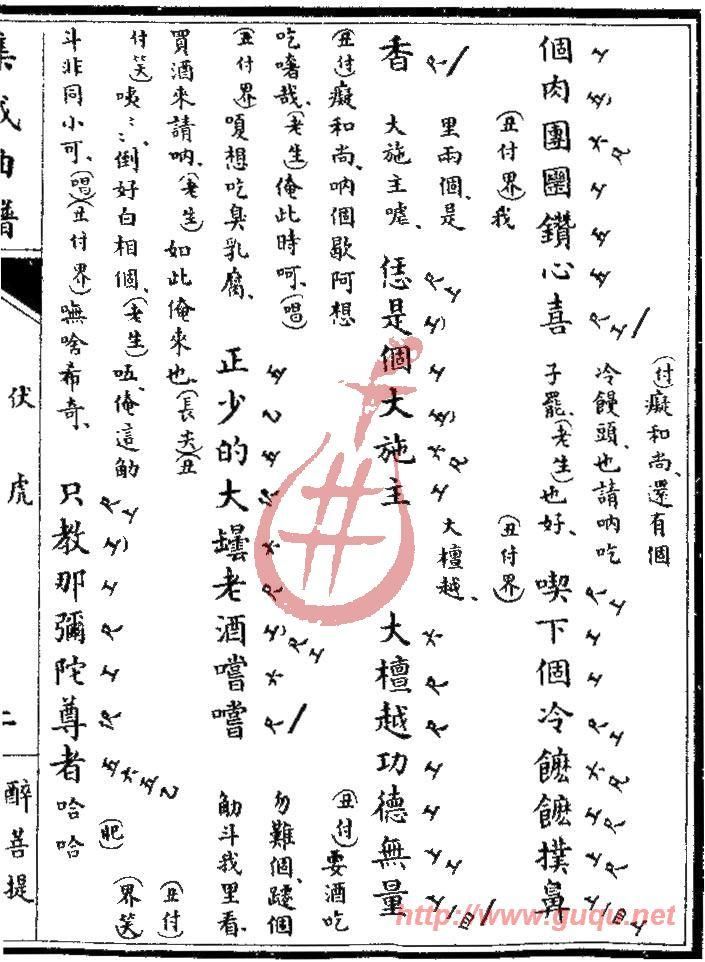 個肉團圞鑽心喜
(付)癡和尚、還有個
冷饅頭、也請吶吃
子罷、(老生)也好、
喫下個冷饝饝撲鼻
香
(丑付界)我
里兩個、是
大施主嘘、
恁是個大施主
(丑付界)
大檀越、
大檀越功德無量
(丑付)癡和尚、吶個歇阿想
吃嗜哉、(老生)俺此時呵、(唱)
正少的大罎老酒嚐嚐
(丑付)要酒吃
勿難個、
觔斗我里看、
(丑付界)嗄想吃臭乳腐、
買酒來請吶、(老生)如此俺來也(長尖)(丑
付笑)咦〻、倒好白相個、(老生)呃、俺這觔
斗非同小可、(唱)(丑付界)嘸啥希奇、
只教那彌陀尊者哈哈
(丑付
界笑)
集成曲譜
伏虎
二
醉菩提
http://www.guqu.net